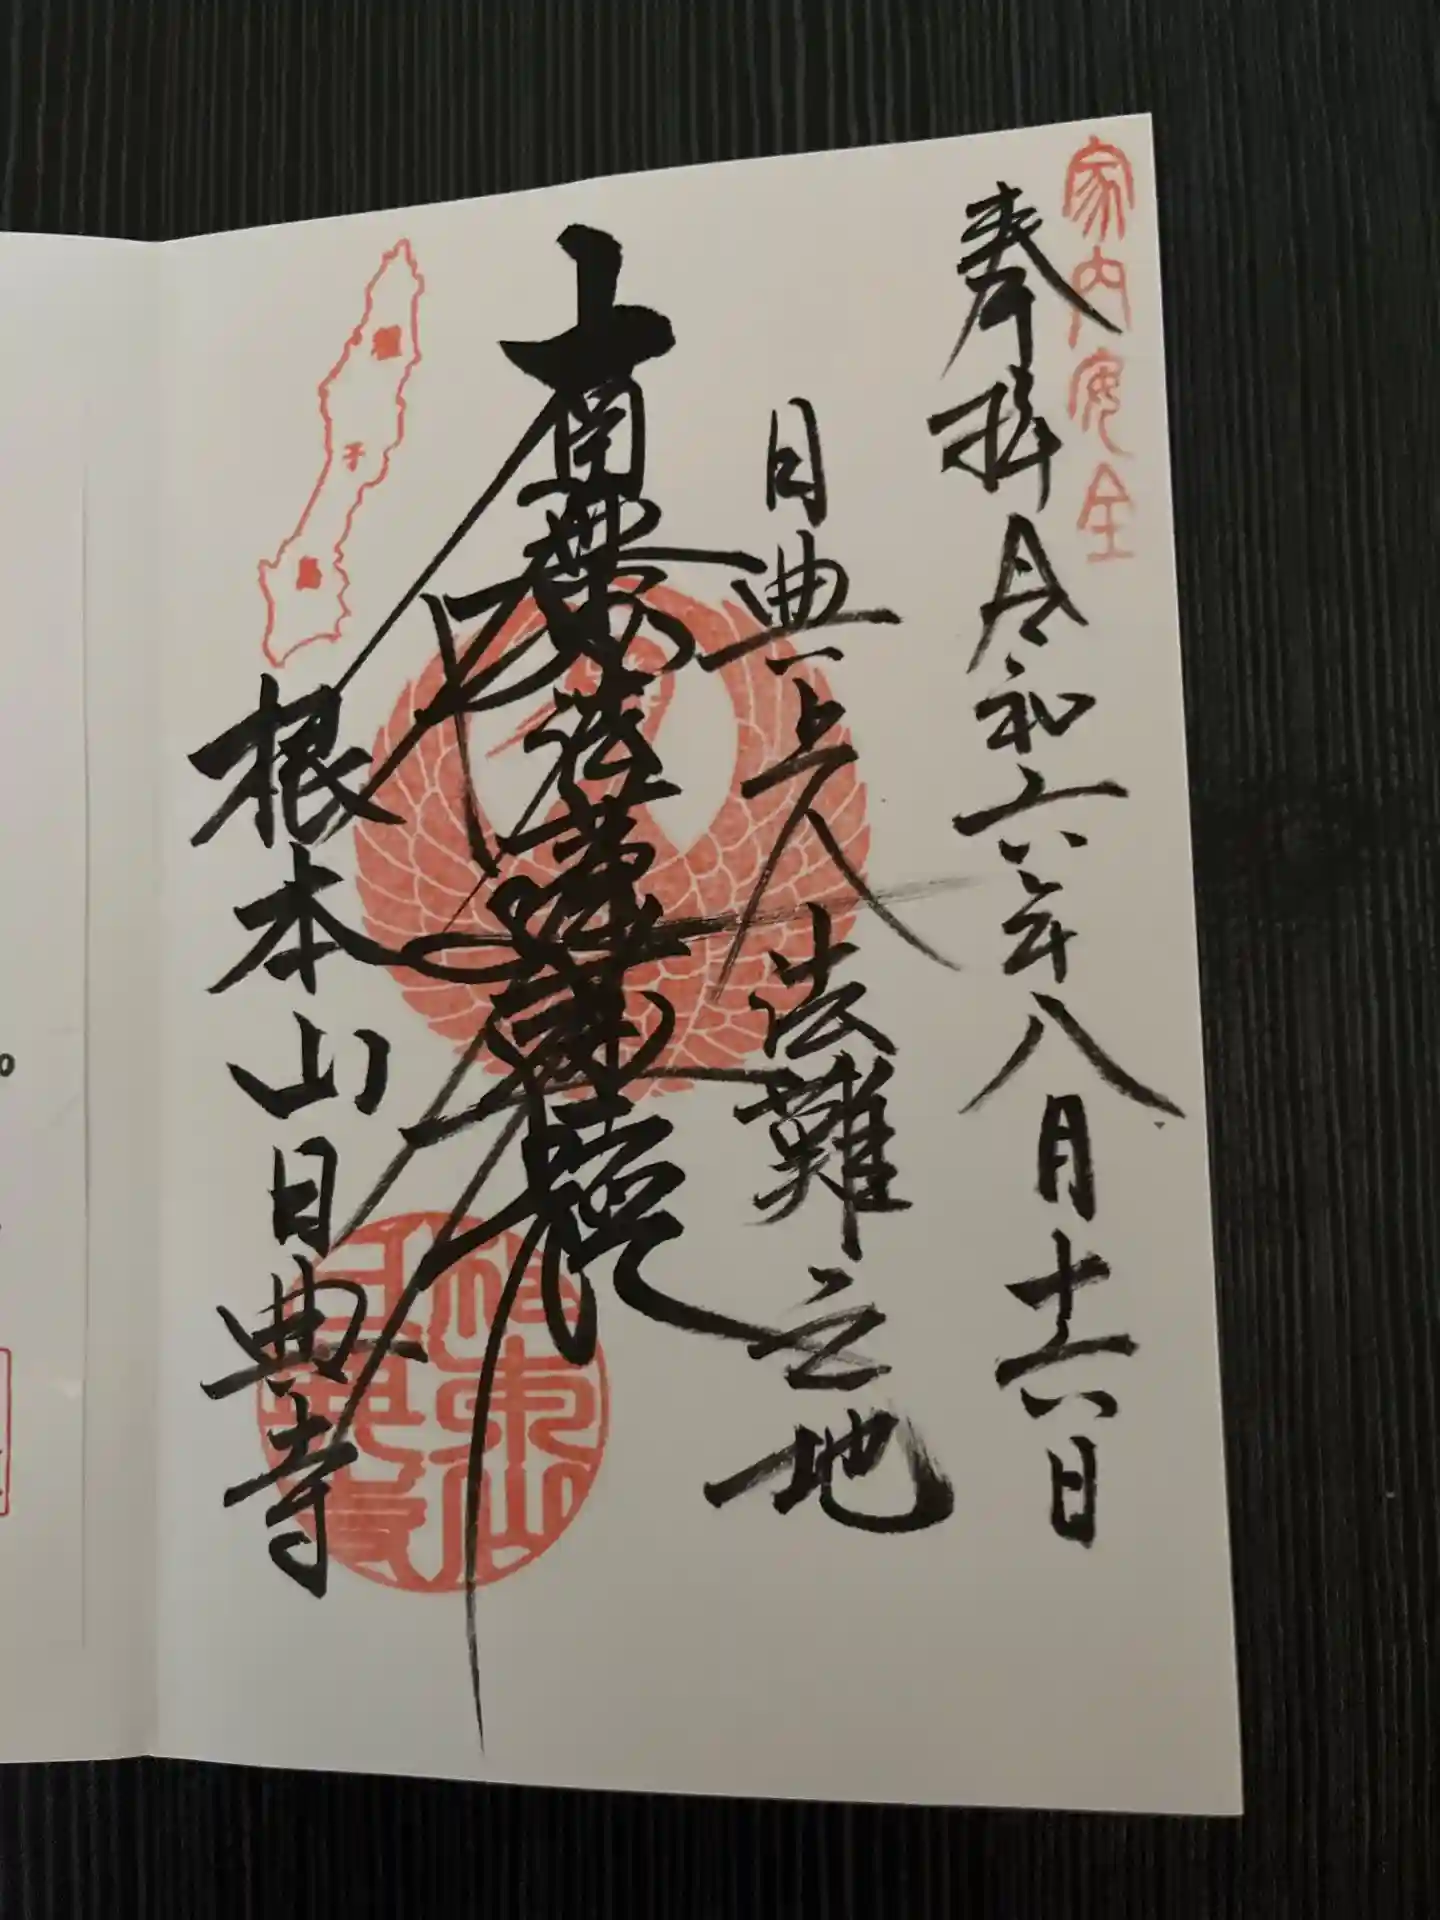 家内安全
奉拝 令和六年八月十六日
日典上人 法難之地
南無妙法蓮華経
種子島
根本山日典寺